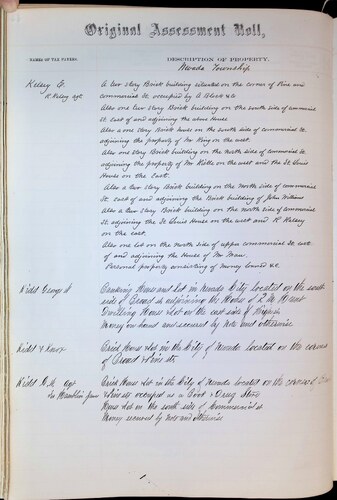 Original Assessment Roll,
NAMES OF TAX PAYERS.
DESCRIPTION OF PROPERTY.
Nevada Township
Kelsey E.
A two story Brick building situated on the corner of Pine and
H. Kelsey agt
commercial St. occupied by A Block & Co
Also one two story Brick building on the south side of commercial
St. east of and adjoining the above House
Also a one story Brick house on the south side of commercial St.
adjoining the property of Mr King on the west.
Also one two story Brick building on the north side of commercial St.
adjoining the property of Mr Kidd on the west and the St. Louis
House on the East.
Also a two story Brick building on the North side of commercial
St. east of and adjoining the Brick building of John Williams
Also a two story Brick building on the north side of commercial
St. adjoining the St. Louis House on the west and H. Kelsey
on the east.
Also one lot on the North side of upper commercial St. east
of and adjoining the House of Mr
Personal property consisting of money loaned &c.
Kidd George W
Banking House and Lot in Nevada City located on the south
side of Broad st adjoining the
Dwelling House Lot on the east side of
Money on hand and secured by Note and otherwise
Kidd & Knox
Brick House Lot in the City of Nevada located on the corner
of Broad & Pine sts
Kidd
agt
Brick House Lot in the City of Nevada located on the corner of
& Pine sts occupied as a Book & Drug Store
House Lot on the south side of Commercial st
Money secured by Note and Otherwise